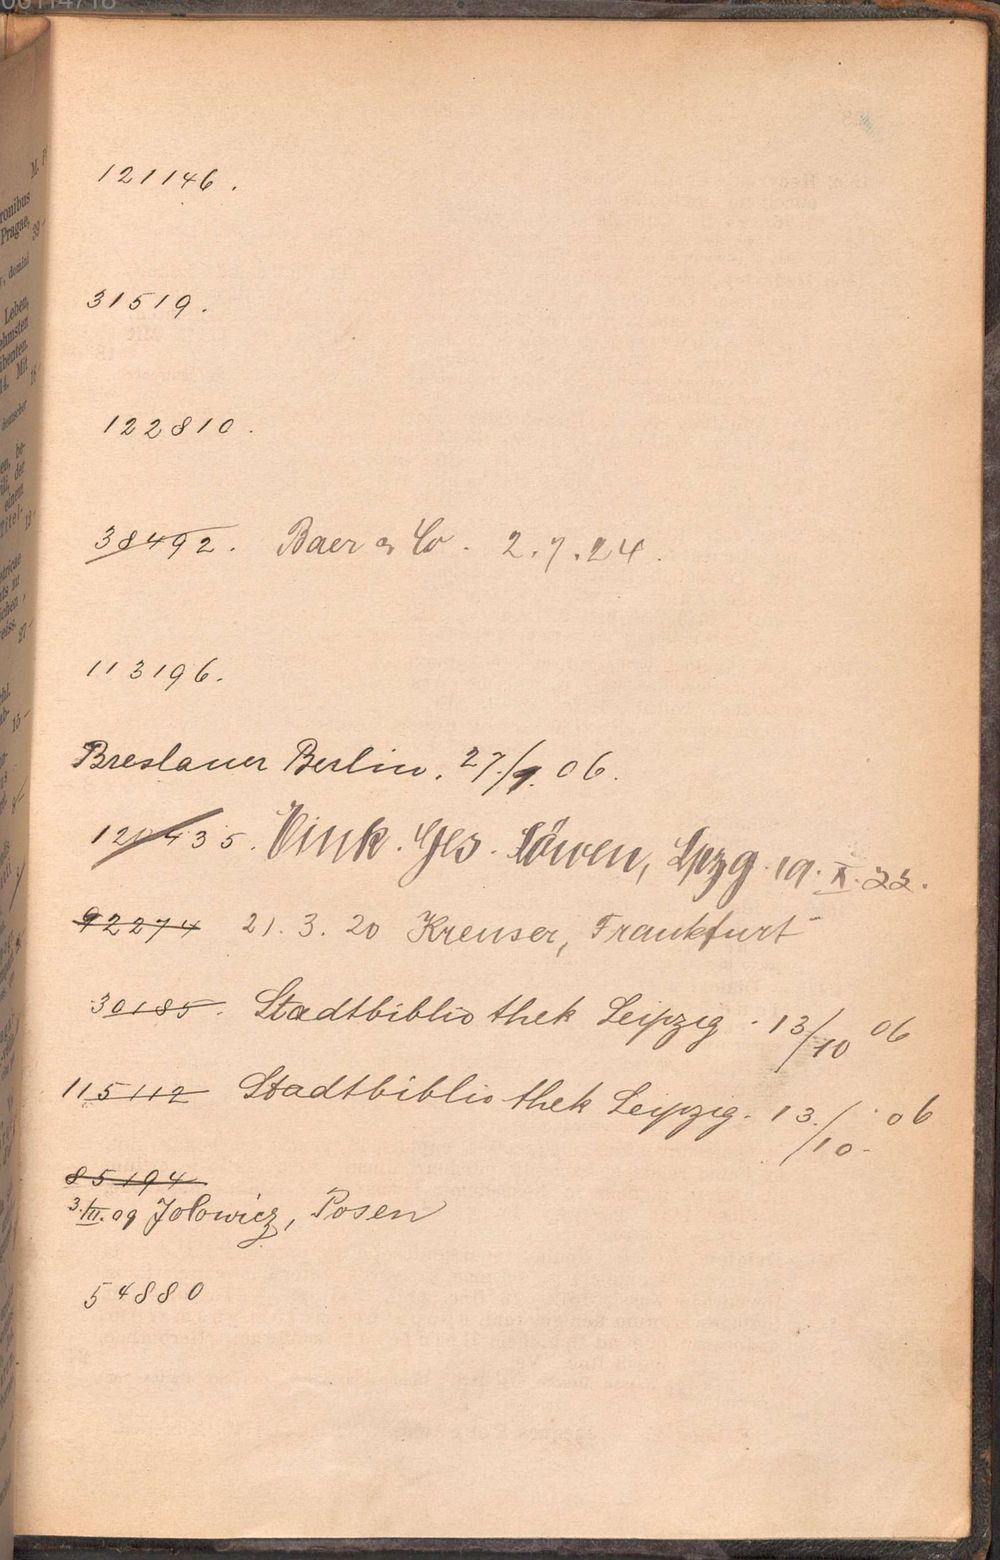 00114718
121146.
31519.
122810.
38492. Baer & Co. 2.7.24.
113196.
Breslauer Berlin. 27./9. 06.
120435. Vink. Ges. Löwen, Lpzg. 19. X. 22.
92274 21. 3. 20 Kreuser, Frankfurt
30185. Stadtbibliothek Leipzig. 13/10 06
115112 Stadtbibliothek Leipzig. 13./10. 06
85194
3./III. 09 Jolowicz, Posen
54880